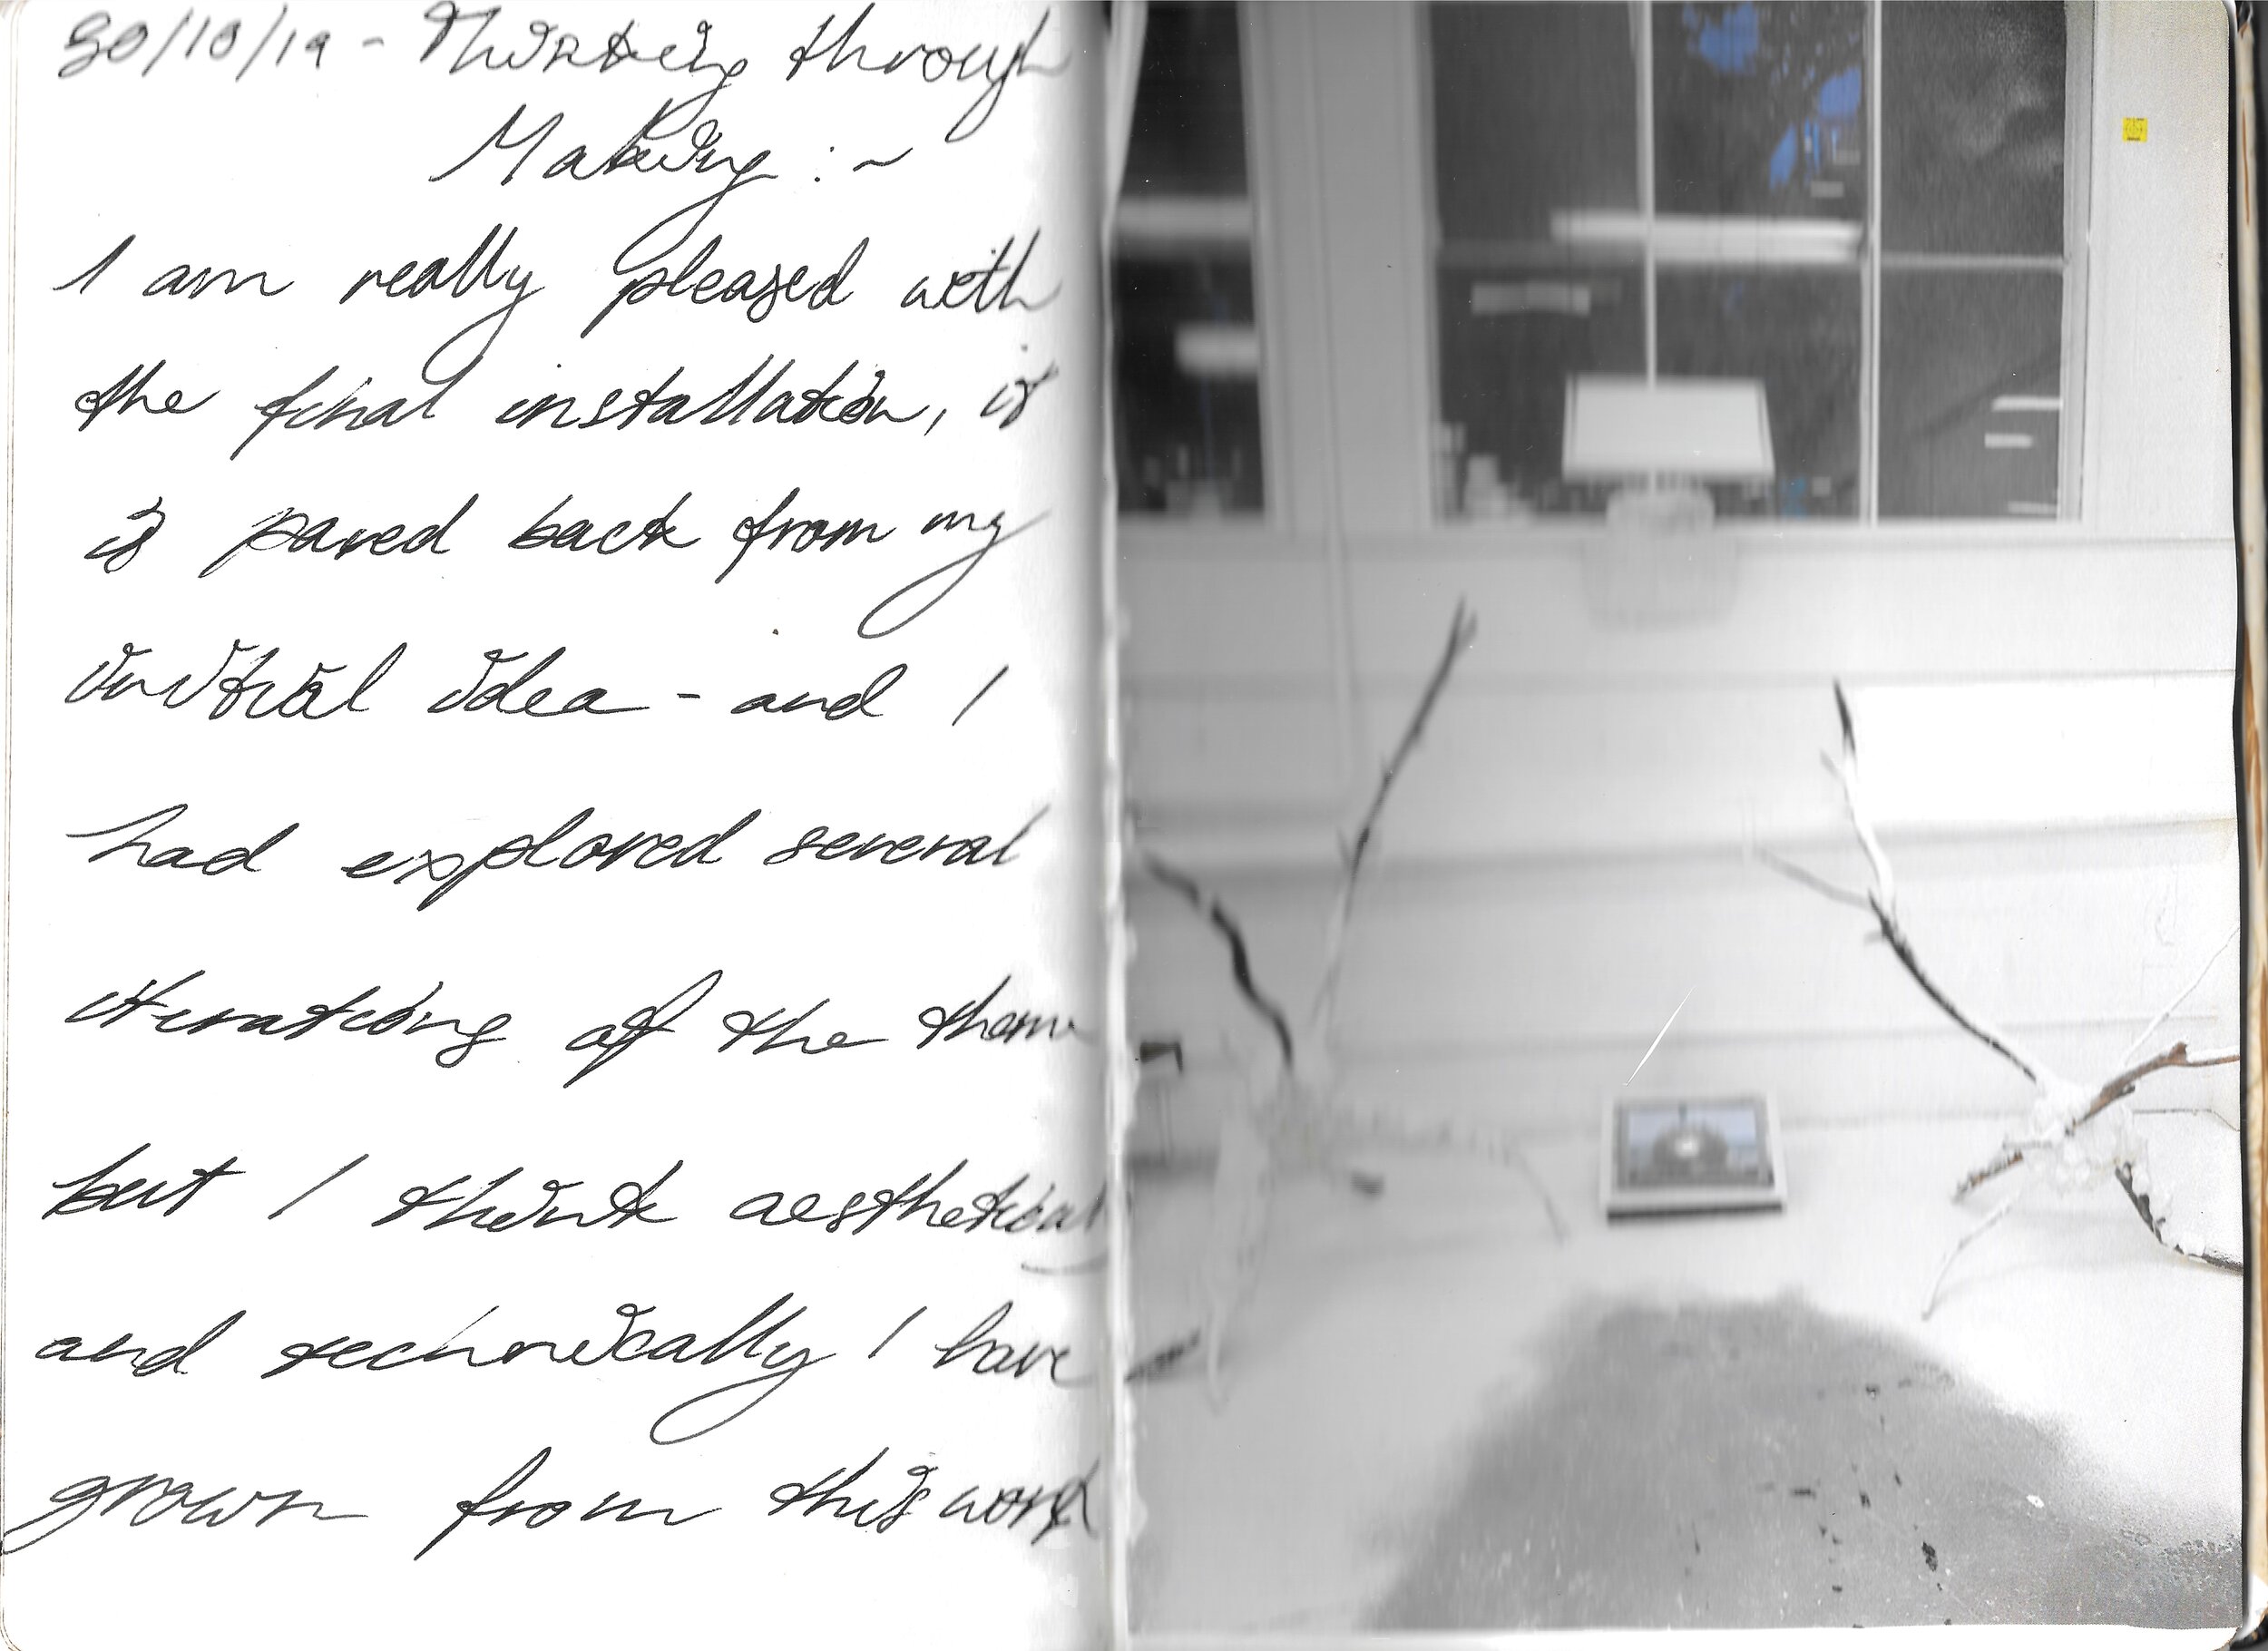 30/10/19 - Thinking through
Making :~
I am really pleased with
the final installation, it
is pared back from my
initial idea - and I
had explored several
iterations of the theme
but I think aesthetically
and technically I have
grown from this work